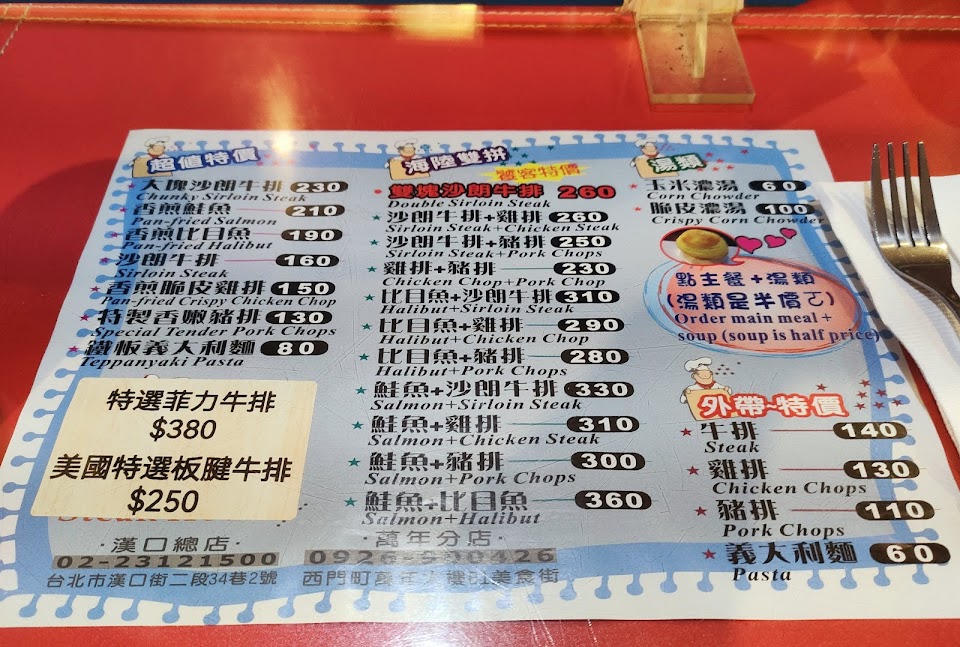 超值特價
大塊沙朗牛排 230
Chunky Sirloin Steak
香煎鮭魚 210
Pan-fried Salmon
香煎比目魚 190
Pan-fried Halibut
沙朗牛排 160
Sirloin Steak
香煎脆皮雞排 150
Pan-fried Crispy Chicken Chop
特製香嫩豬排 130
Special Tender Pork Chops
鐵板義大利麵 80
Teppanyaki Pasta
特選菲力牛排
$380
美國特選板腱牛排
$250
海陸雙拼
饕客特價
雙塊沙朗牛排 260
Double Sirloin Steak
沙朗牛排+雞排 260
Sirloin Steak+Chicken Steak
沙朗牛排+豬排 250
Sirloin Steak+Pork Chops
雞排+豬排 230
Chicken Chop+Pork Chop
比目魚+沙朗牛排 310
Halibut+Sirloin Steak
比目魚+雞排 290
Halibut+Chicken Chop
比目魚+豬排 280
Halibut+Pork Chops
鮭魚+沙朗牛排 330
Salmon+Sirloin Steak
鮭魚+雞排 310
Salmon+Chicken Steak
鮭魚+豬排 300
Salmon+Pork Chops
鮭魚+比目魚 360
Salmon+Halibut
湯類
玉米濃湯 60
Corn Chowder
脆皮濃湯 100
Crispy Corn Chowder
點主餐+湯類
(湯類是半價ㄛ)
Order main meal +
soup (soup is half price)
外帶~特價
牛排 140
Steak
雞排 130
Chicken Chops
豬排 110
Pork Chops
義大利麵 60
Pasta
·漢口總店·
02-23121500
台北市漢口街二段34巷2號
·萬年分店·
西門町萬年大樓B1美食街